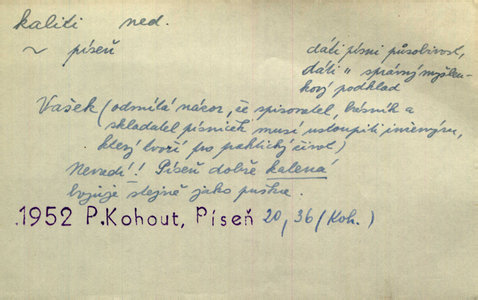 kaliti ned.
~ píseň dáti písni působivost,
dáti " správný myšlen-
kový podklad
Vašek (odmítá názor, že spisovatel, básník a
skladatel písniček musí ustoupiti inženýru,
který tvoří pro praktický život)
Nevadí! Píseň dobře kalená
bojuje stejně jako puška.
1952 P.Kohout, Píseň 20, 36 (Koh.)